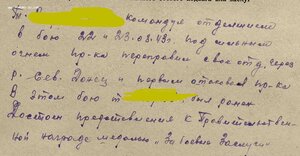 Т. командуя отделением
в бою 22 и 23.03.43г. под сильным
огнем пр-ка переправил свое отд. через
р. Сев. Донец и первым атаковал пр-ка
В этом бою т. был ранен
Достоин представления к Правительствен-
ной награде медалью "За боевые Заслуги"